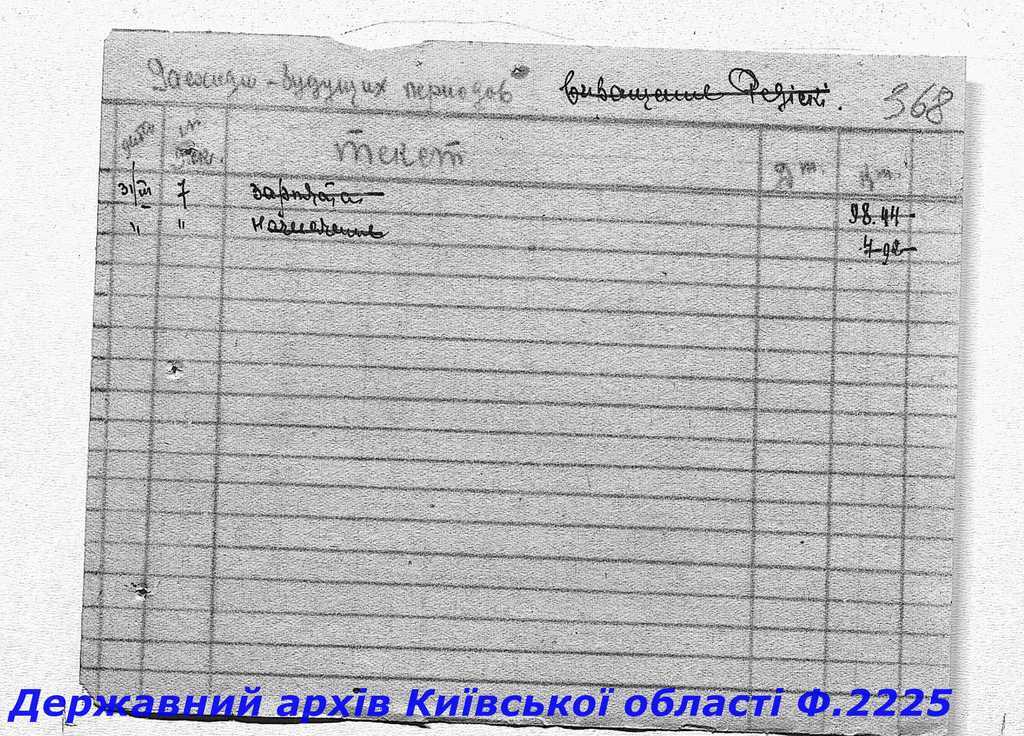 Расходы будущих периодов виващание Редіскі. 368
Дата текст Дт. Кт.
31/III 7 зарплата 98.44
" " 7-92
Державний архів Київської області Ф.2225